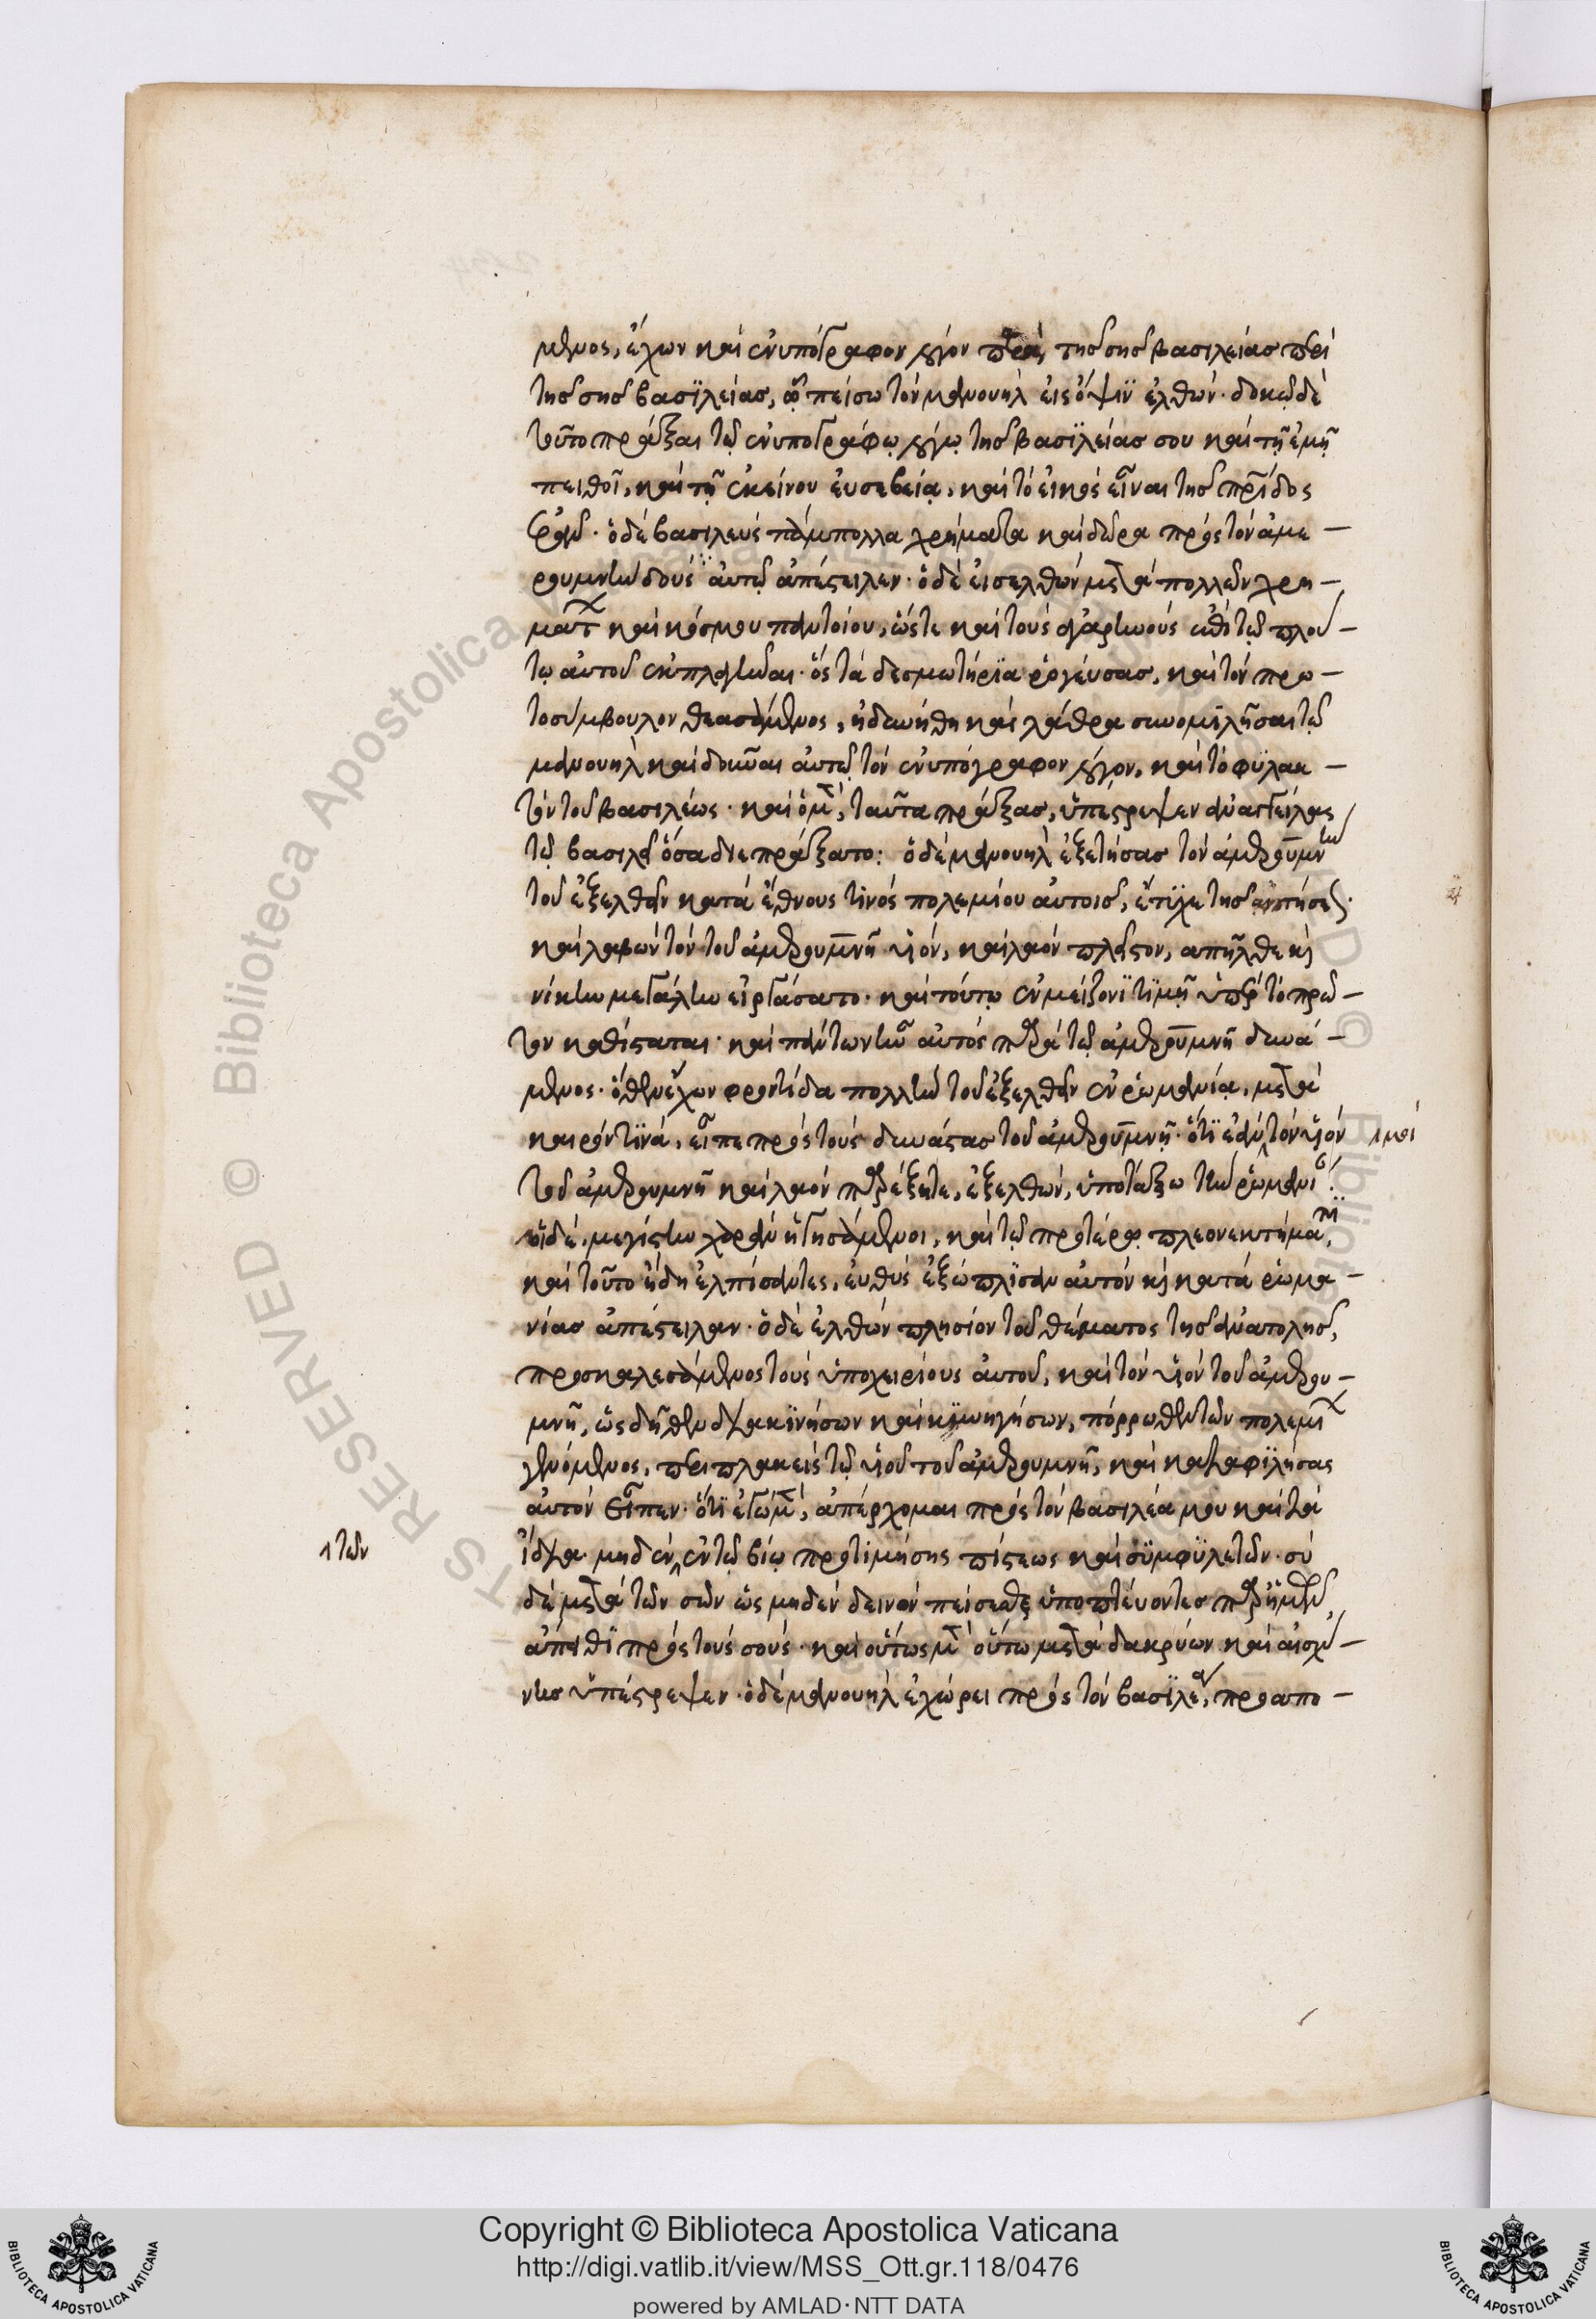 μενος, ἔχων καὶ ἐνυπόγραφον λόγον παρὰ τῆς σῆς βασιλείας περὶ
τῆς σῆς βασϊλείας, πείσω τὸν μανουὴλ εἰς ὄψιν ἐλθών· δοκῶ δὲ
τοῦτο πράξαι τῷ ἐνυπογράφῳ λόγῳ τῆς βασϊλείας σου καὶ τῇ ἐμῇ
πειθοῖ, καὶ τῇ ἐκείνου εὐσεβείᾳ, καὶ τὸ εἰκὸς εἶναι τῆς πρίδος
ἐρᾶν· ὁ δὲ βασιλεὺς πάμπολλα χρήματα καὶ δῶρα πρὸς τὸν ἀμε-
ρουμνὴν δοὺς αὐτῷ ἀπέστειλεν· ὁ δὲ εἰσελθὼν μετὰ πολλῶν χρη-
μάτ καὶ κόσμου παντοίου, ὥστε καὶ τοὺς ἀγαρηνοὺς ἐπὶ τῷ πλού-
τῳ αὐτοῦ ἐκπλαγῆναι· ὃς τὰ δεσμωτήρϊα ῥογεύσας, καὶ τὸν πρω-
τοσύμβουλον θεασάμενος, ἠδυνήθη καὶ λάθρα συνομιλῆσαι τῷ
μανουὴλ καὶ δοῦναι αὐτῷ τὸν ἐνυπόγραφον λόγον, καὶ τὸ φϋλακ-
τὸν τοῦ βασιλέως· καὶ ὁ μ, ταῦτα πράξας, ὑπέστρεψεν ἀναγγείλας
τῷ βασιλεῖ ὅσα διεπράξατο: ὁ δὲ μανουὴλ ἐξετήσας τὸν ἀμερουμνὴν
τοῦ ἐξελθεῖν κατὰ ἔθνους τϊνὸς πολεμίου αὐτοῖς, ἔτϋχε τῆς αἰτήσεως·
καὶ λαβὼν τὸν τοῦ ἀμερουμνῆ υἱόν, καὶ λαὸν πλεῖστον, ἀπῆλθε καὶ
νίκην μεγάλην εἰργάσατο· καὶ τούτῳ ἐν μείζονϊ τϊμῇ ὑπὲρ τὸ πρῶ-
τον καθίσταται· καὶ πάντων ἦν αὐτὸς παρὰ τῷ ἀμερουμνῆ δυνά-
μενος· ὅθεν ἔχων φροντίδα πολλὴν τοῦ ἐξελθεῖν ἐν ῥωμανίᾳ, μετὰ
καιρόν τϊνά, εἶπε πρὸς τοὺς δυνάστας τοῦ ἀμερουμνῆ· ὅτϊ ἐὰν τὸν υἱὸν μοι
τοῦ ἀμερουμνῆ καὶ λαὸν παρέξητε, ἐξελθών, ὑποτάξω τὴν ῥωμανί
οἱ δὲ, μεγίστην χαρὰν ἡγησάμενοι, καὶ τῷ προτέρῳ πλεονεκτήματι,
καὶ τοῦτο ἤδη ἐλπίσαντες, εὐθὺς ἐξώπλϊσαν αὐτὸν καὶ κατὰ ῥωμα-
νίας ἀπέστειλαν· ὁ δὲ ἐλθὼν πλησίον τοῦ θέματος τῆς ἀνατολῆς,
προσκαλεσάμενος τοὺς ὑποχειρίους αὐτοῦ, καὶ τὸν υἱὸν τοῦ ἀμερου-
μνῆ, ὡς δῆθεν διακϊνήσων καὶ κϋνηγήσων, πόρρωθεν τῶν πολεμι
γενόμενος, περιπλακεὶς τῷ υἱοῦ τοῦ ἀμερουμνῆ, καὶ καταφϊλήσας
αὐτὸν εἶπεν· ὅτϊ ἐγὼ μ, ἀπέρχομαι πρὸς τὸν βασιλέα μου καὶ τὰ
τῶν
ἴδια· μηδὲν ἐν τῷ βίῳ προτιμήσης πίστεως καὶ σϋμφϋλετῶν· σὺ
δὲ μετὰ τῶν σῶν ὡς μηδὲν δεινὸν πείσεσθε ὑποπτεύοντες παρ' ἡμῶν
ἄπιθϊ πρὸς τοὺς σούς· καὶ οὕτως μ οὕτω μετὰ δακρύων καὶ αἰσχύ-
νης ὑπέστρεψεν· ὁ δὲ μανουὴλ ἐχώρει πρὸς τὸν βασϊλέα, προαπο-
Copyright © Biblioteca Apostolica Vaticana
http://digi.vatlib.it/view/MSS_Ott.gr.118/0476
powered by AMLAD·NTT DATA